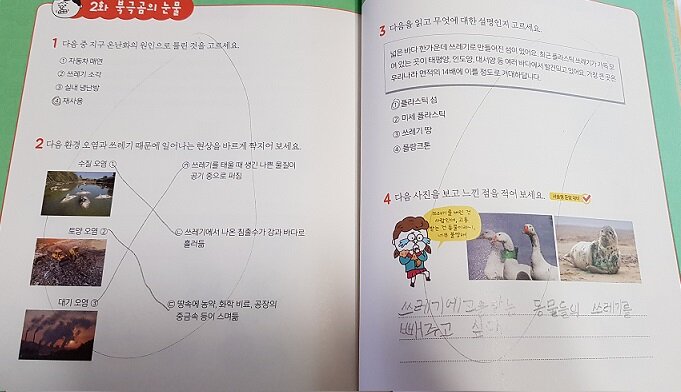 2화 북극곰의 눈물
1 다음 중 지구 온난화의 원인으로 틀린 것을 고르세요.
① 자동차 매연
② 쓰레기 소각
③ 실내 냉난방
④ 재사용
2 다음 환경 오염과 쓰레기 때문에 일어나는 현상을 바르게 짝지어 보세요.
수질 오염 ①
㉠ 쓰레기를 태울 때 생긴 나쁜 물질이
공기 중으로 퍼짐
토양 오염 ②
㉡ 쓰레기에서 나온 침출수가 강과 바다로
흘러듦
대기 오염 ③
㉢ 땅속에 농약, 화학 비료, 공장의
중금속 등이 스며듦
3 다음을 읽고 무엇에 대한 설명인지 고르세요.
넓은 바다 한가운데 쓰레기로 만들어진 섬이 있어요. 최근 플라스틱 쓰레기가 가득 모
여 있는 곳이 태평양, 인도양, 대서양 등 여러 바다에서 발견되고 있어요. 가장 큰 곳은
우리나라 면적의 14배에 이를 정도로 거대하답니다.
① 플라스틱 섬
② 미세 플라스틱
③ 쓰레기 땅
④ 플랑크톤
4 다음 사진을 보고 느낀 점을 적어 보세요.
쓰레기를 버린 건
사람인데, 고통
받는 건 동물이라니,
너무 불쌍해!
쓰레기에 고통받는 동물들의 쓰레기를
빼주고 싶다